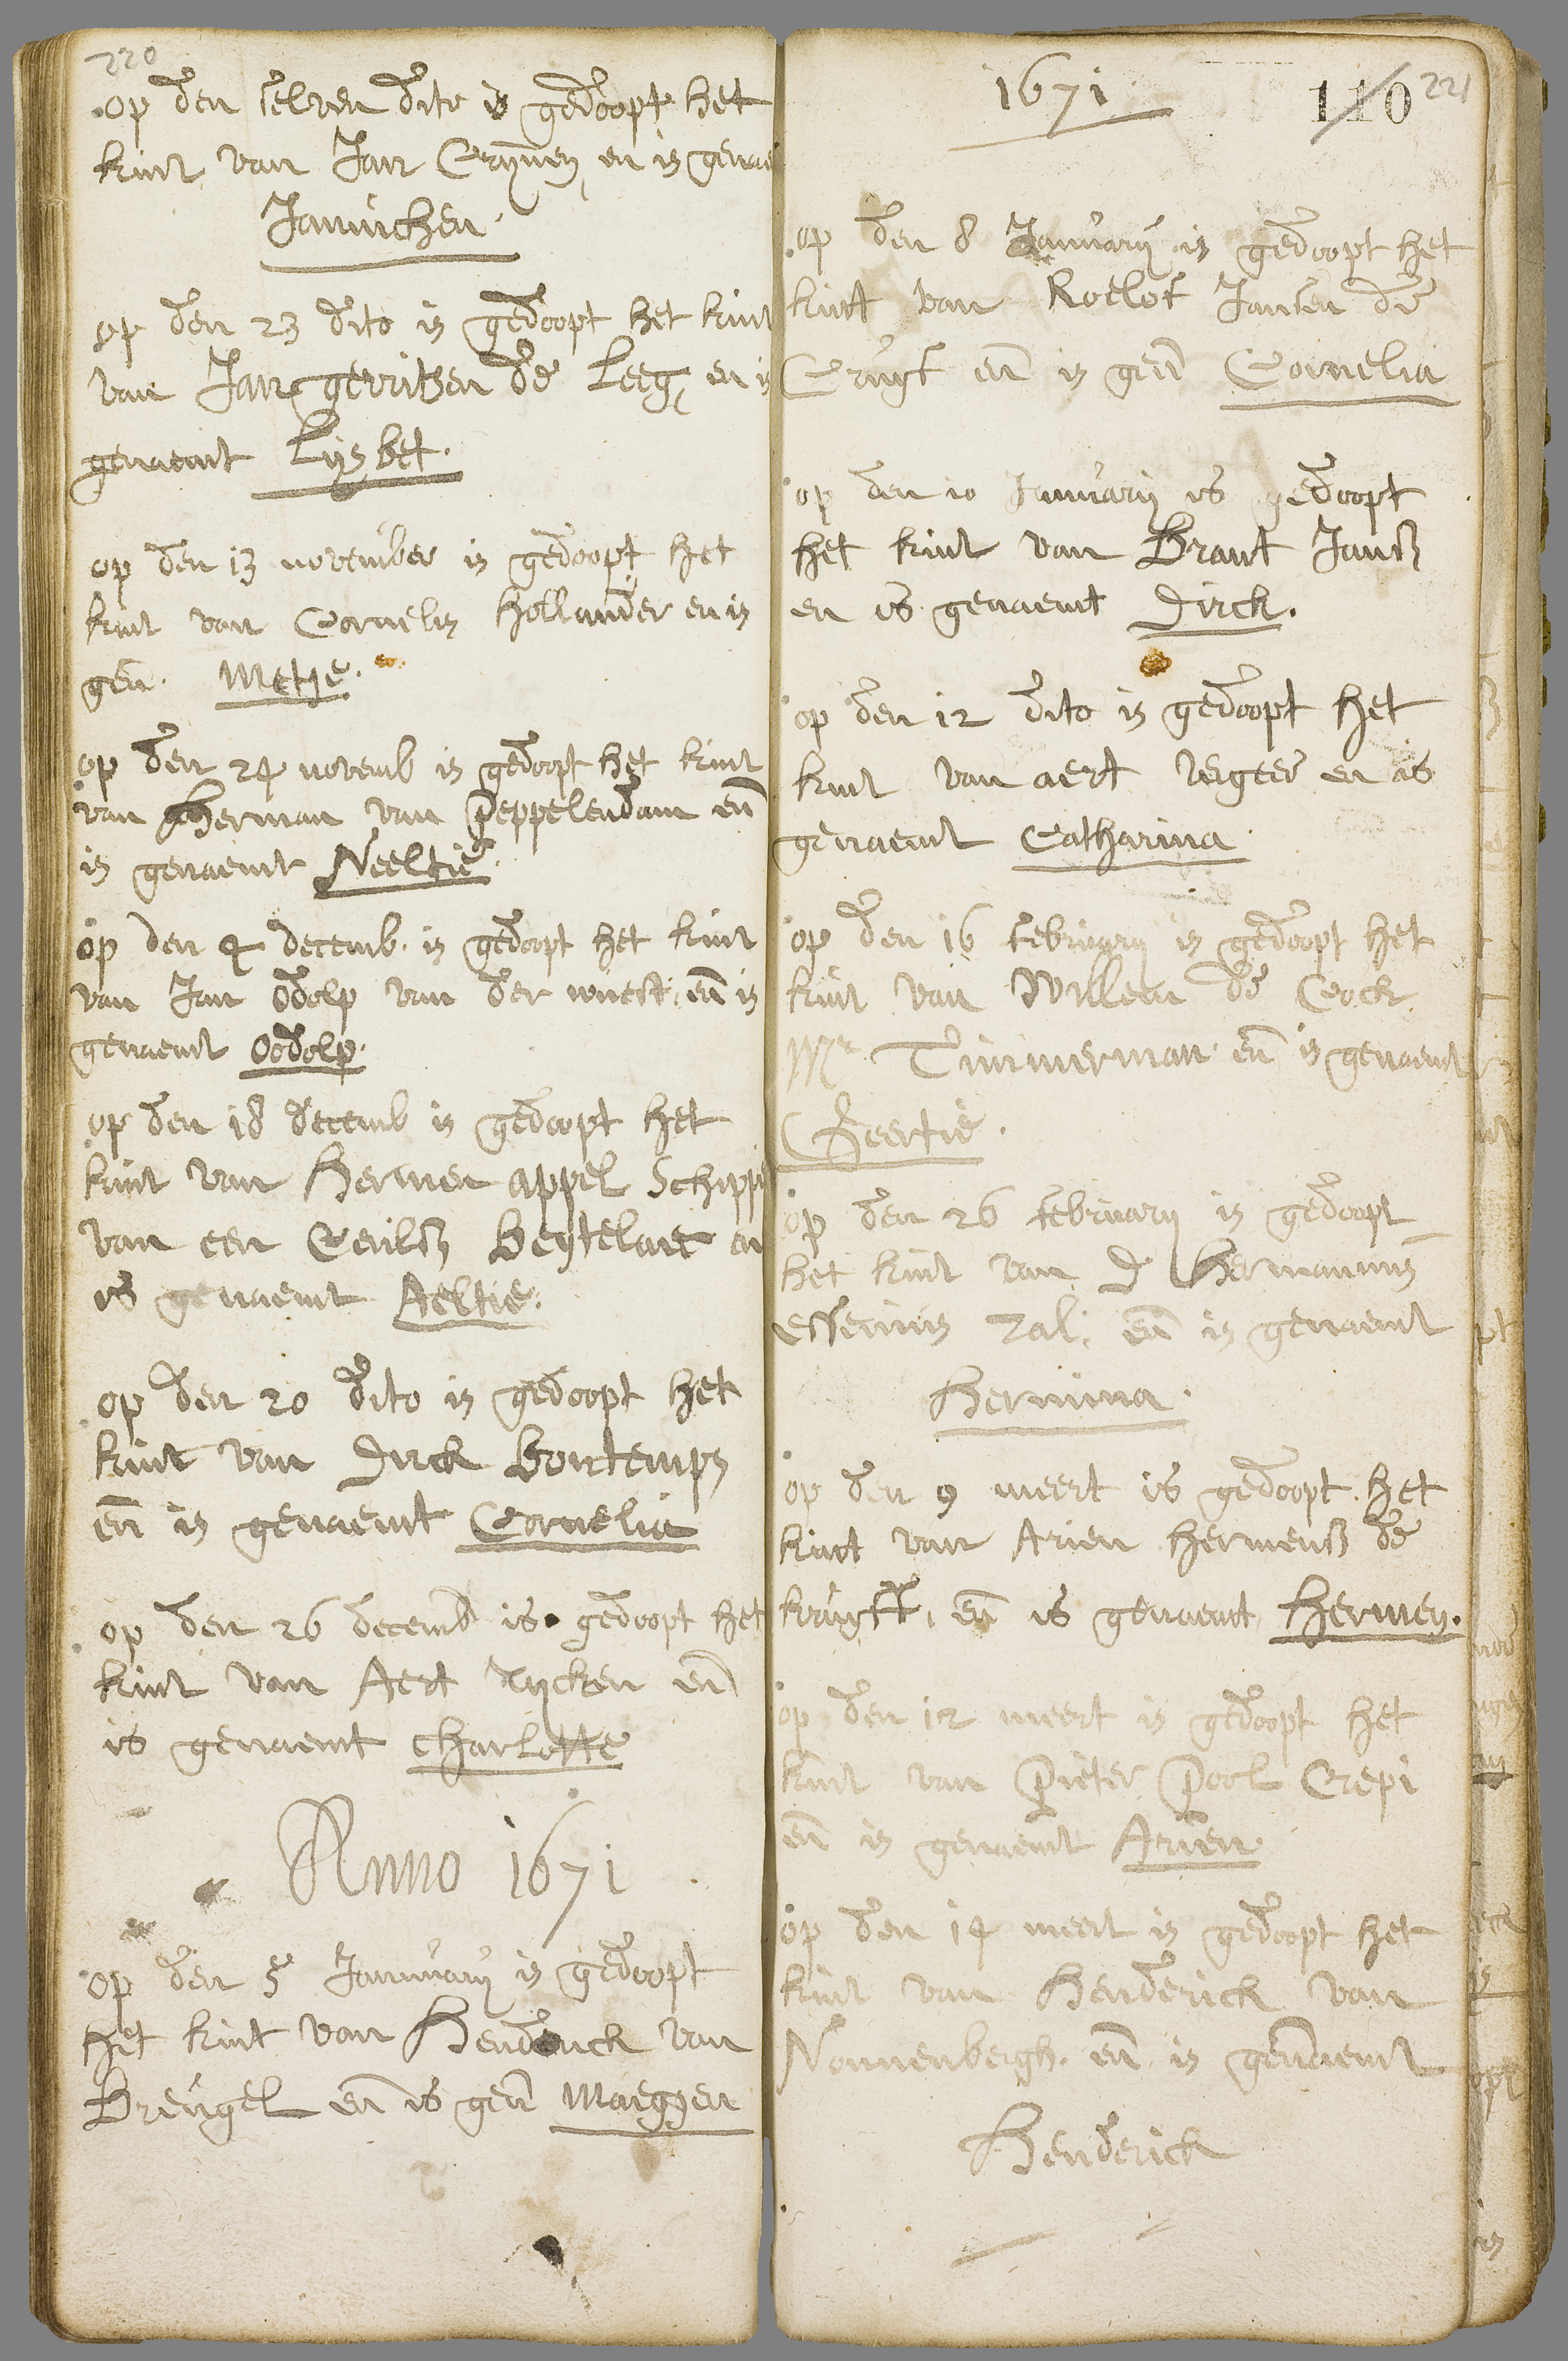 220
op den selven dito is gedoopt het
kint van Jan Crÿnen en is genae
Jannichen.
op den 23 dito is gedoopt het kint
van Jan gerritsen de Leeg, en is
genaemt Lijsbet.
op den 13 november is gedoopt het
kint van Cornelis Hollander en is
gen. Metje.
op den 24 novemb is gedoopt het kint
van Herman van Peppelendam en
is genaemt Neeltie.
op den 4 decemb. is gedoopt het kint
van Jan Odolp van der wnest. en is
genaemt Oodolp.
op den 18 decemb is gedoopt het
kint van Hermen appel Schipp
van een Beytelaer en
is genaemt Aeltie.
op den 20 dito is gedoopt het
kint van Dirck Bontemps
en is genaemt Cornelia
op den 26 decemb is gedoopt het
kint van Aert Rycken en
is genaemt Charlotte
Anno 1671
op den 5 January is gedoopt
het kint van Henderick van
Breugel en is gen Maegjen
1671
110 221
op den 8 January is gedoopt het
kint van Roelof Jansen de
Cruyf en is gen Cornelia
op den 10 January is gedoopt
het kint van Brant Jansz
en is genaemt Dirck.
op den 12 dito is gedoopt het
kint van aert vergeer en is
genaemt Catharina
op den 16 february is gedoopt het
kint van Willem de Cock
Mr Timmerman en is genaemt
Geertie.
op den 26 february is gedoopt
het kint van D Hermannus
Essenius Zal. en is genaemt
Hermina.
op den 9 meert is gedoopt het
kint van Arien Hermensz de
kruyff, en is genaemt Hermen.
op den 12 meert is gedoopt het
kint van Pieter Pool Crepi
en is genaemt Arien
op den 14 meert is gedoopt het
kint van Henderick van
Nonnenbergh. en is genaemt
Henderick